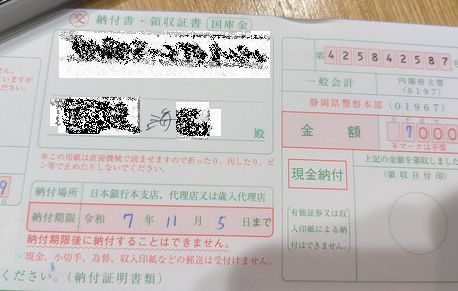 交 納付書・領収証書 国庫金
殿
※この用紙は直接機械で読ませますので折ったり、汚したり、ピン等で止めたりしないでください。
納付場所 日本銀行本支店、代理店又は歳入代理店
納付期限 令和 7 年 11 月 5 日まで
納付期限後に納付することはできません。
現金、小切手、為替、収入印紙などの郵送は受付けません。
ください。(納付証明書類)
第 425842587 号
一般会計 内閣府主管
(6197)
静岡県警察本部 (01967)
金額 7000
¥マークは不要
現金納付
有価証券又は収
入印紙による納
付はできません。
上記の金額を領収しまし
(領収日付印)